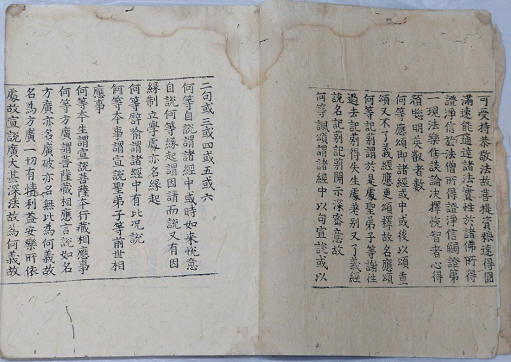 可受持恭敬法故菩提資粮速得圓
滿速能通達諸法實性於諸佛所得
證淨信於法僧所得證淨信觸證第
一現法樂住談論法擇悅智者心得
預聰明英叡者數
何等應頌即諸經或中或後以頌重
頌又不了義經應更頌釋故名應頌
何等記莂謂於是處聖弟子等謝往
過去記莂得失生處差別又了義經
說名記莂記莂開示深密意故
何等諷頌謂諸經中以句宣說或以
二句或三或四或五或六
何等自說謂諸經中或時如來悅意
自說何等緣起謂因請而說又有因
緣制立學處亦名緣起
何等譬喻謂諸經中有比况說
何等本事謂宣說聖弟子等前世相
應事
何等本生謂宣說菩薩本行藏相應事
何等方廣謂菩薩藏相應言說如名
方廣亦名廣破亦名無比為何義故
名為方廣一切有情利益安樂所依
處故宣說廣大甚深法故為何義故